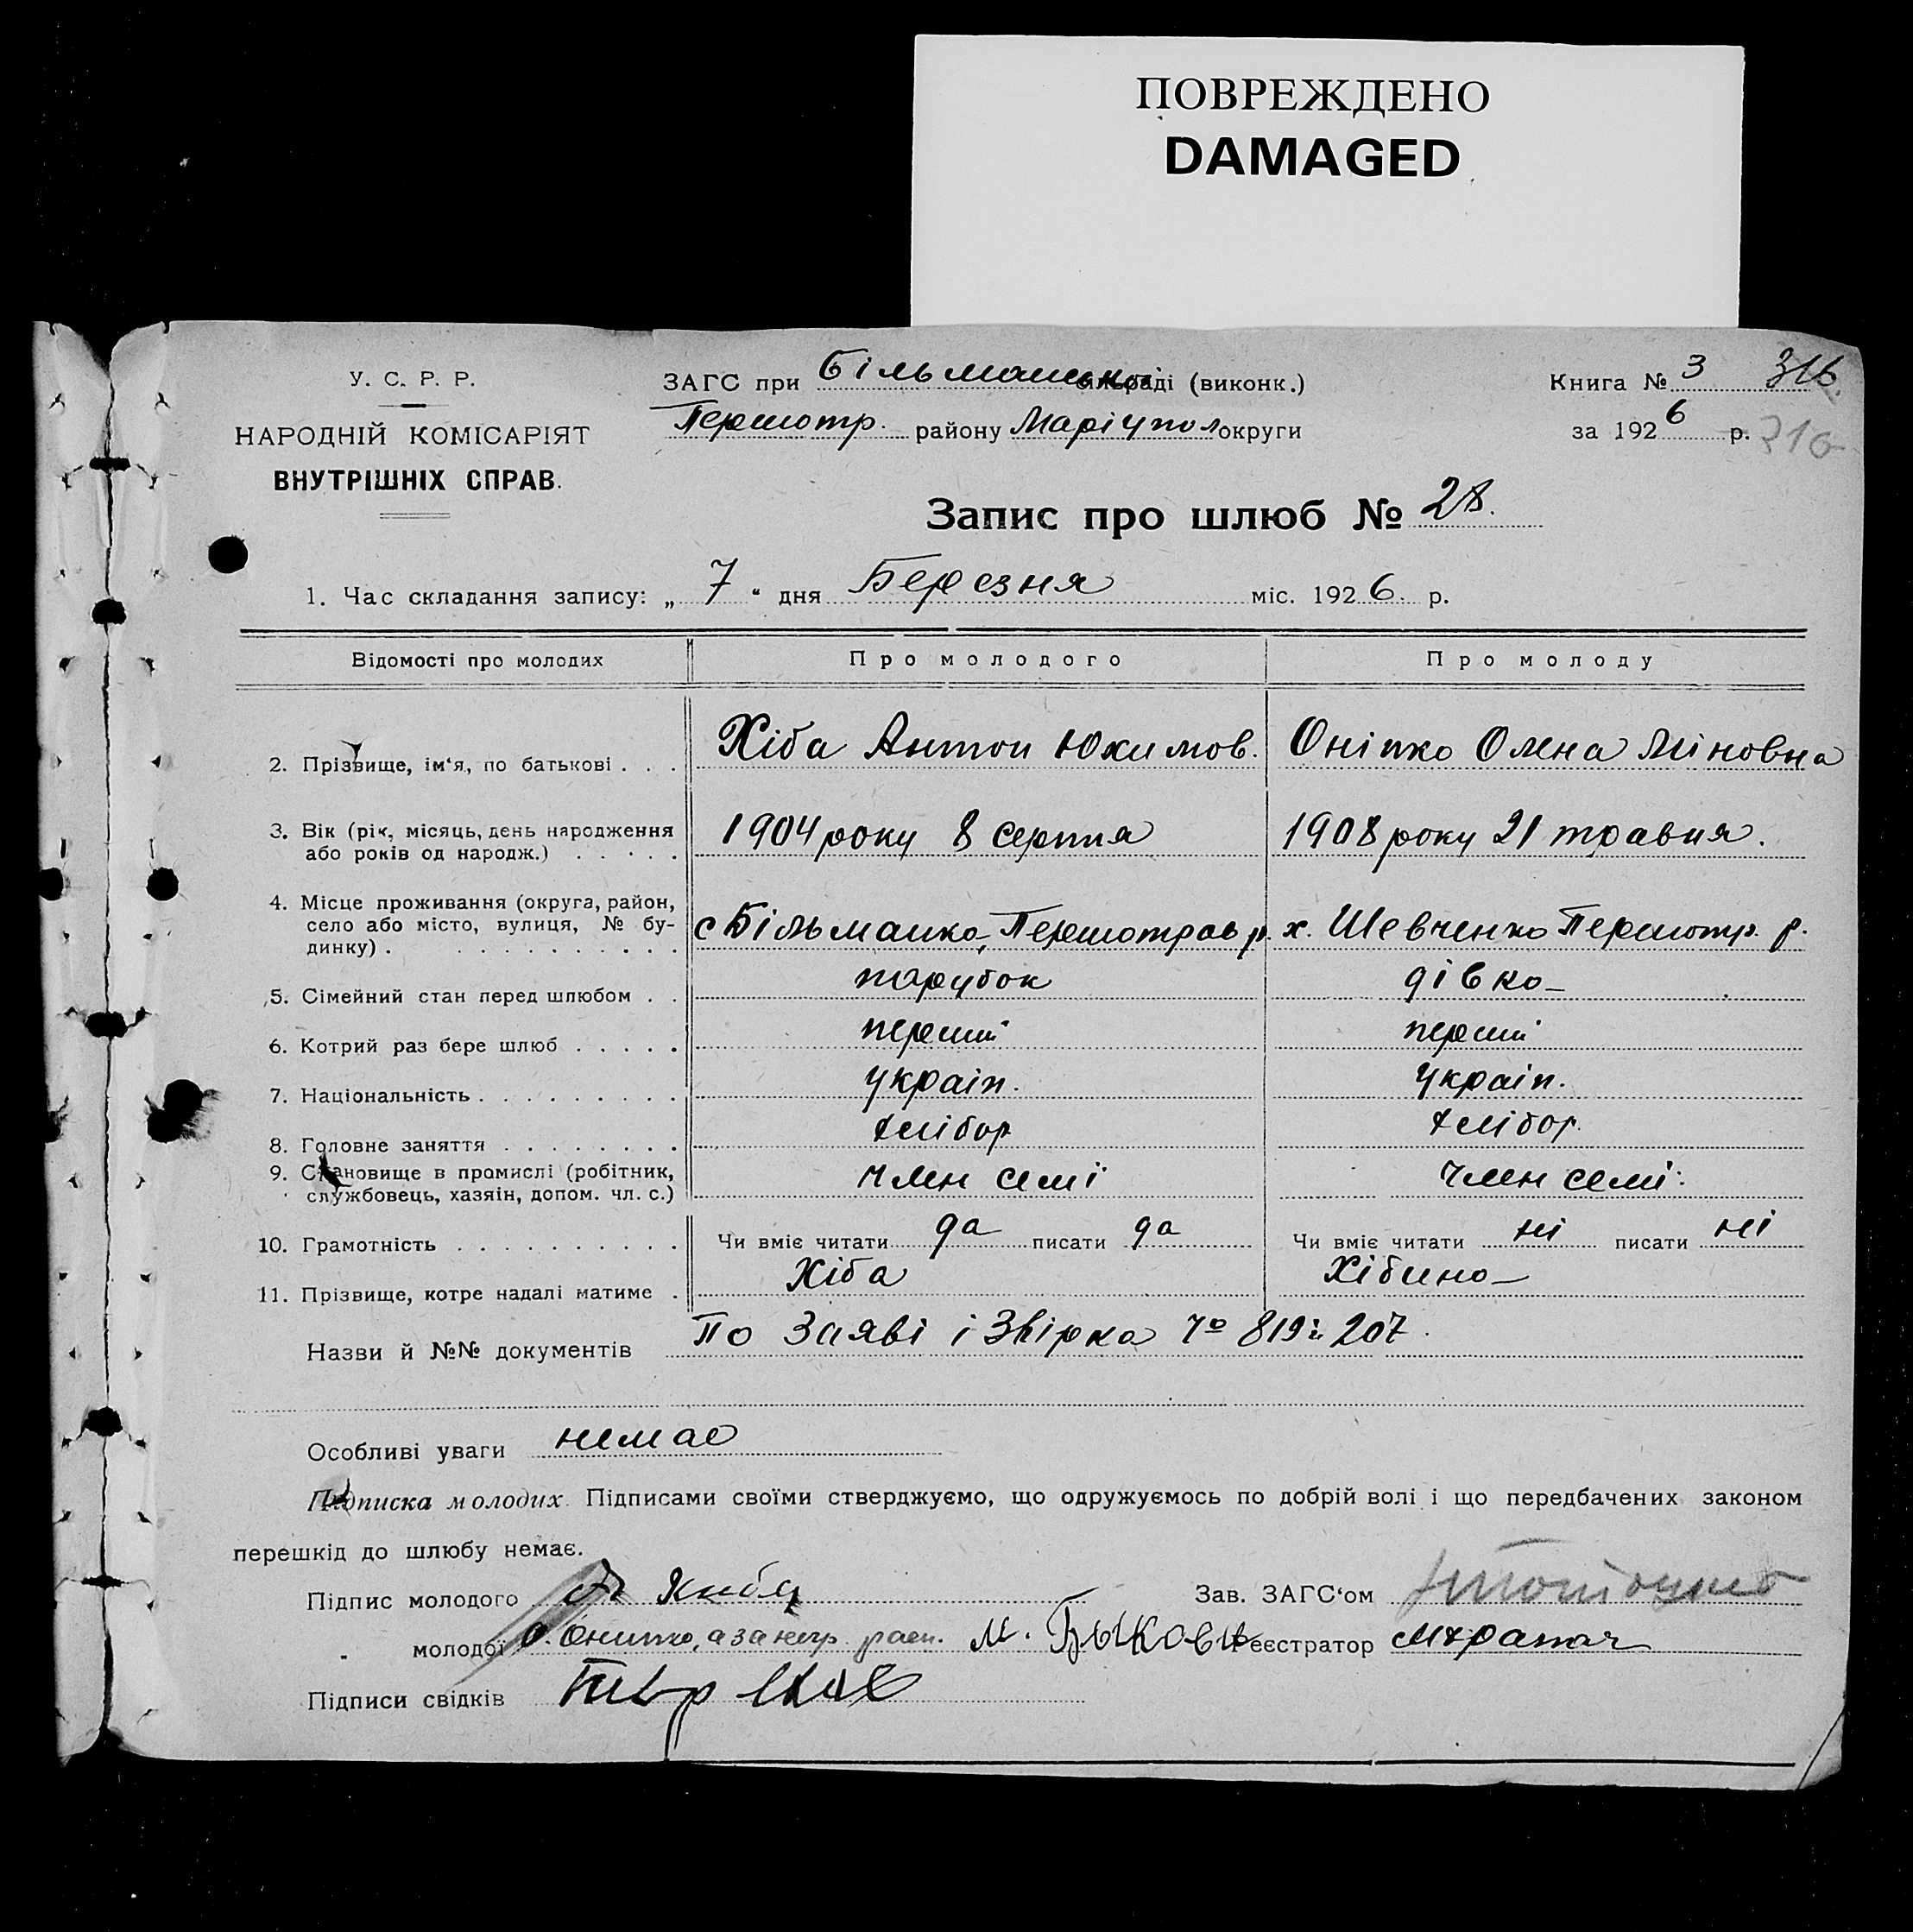 ПОВРЕЖДЕНО
DAMAGED
У. С. Р. Р.
НАРОДНІЙ КОМІСАРІЯТ
ВНУТРІШНІХ СПРАВ.
ЗАГС при Більманськ раді (виконк.)
Першотр. району Маріупол округи
Книга № 3 316
за 1926 р. 316
Запис про шлюб № 28.
1. Час складання запису: „ 7 “ дня Березня міс. 1926. р.
Відомості про молодих Про молодого Про молоду
2. Прізвище, ім‘я, по батькові . . . Хіба Антон Юхимов. Оніпко Олена Міновна
3. Вік (рік, місяць, день народження або років од народж.) . . . . . 1904 року 8 серпня 1908 року 21 травня.
4. Місце проживання (округа, район, село або місто, вулиця, № будинку) . . . . . . . . . . с Більманка, Першотрав р. х. Шевченко Першотр. р.
5. Сімейний стан перед шлюбом . . парубок дівка
6. Котрий раз бере шлюб . . . . . перший перший
7. Національність . . . . . . . . . україн. україн.
8. Головне заняття . . . . . . . . хлібор хлібор.
9. Становище в промислі (робітник, службовець, хазяїн, допом. чл. с.) член семї член семї
10. Грамотність . . . . . . . . . . Чи вміє читати да писати да Чи вміє читати ні писати ні
11. Прізвище, котре надалі матиме . Хіба Хібина
Назви й №№ документів По заяві і Звірка 819 і 207.
Особливі уваги немає
Підписка молодих. Підписами своїми стверджуємо, що одружуємось по добрій волі і що передбачених законом
перешкід до шлюбу немає.
Підпис молодого Хиба Зав. ЗАГС‘ом
„ молодої О. Онипко, а за негр. расп. М. Быковец Реєстратор
Підписи свідків